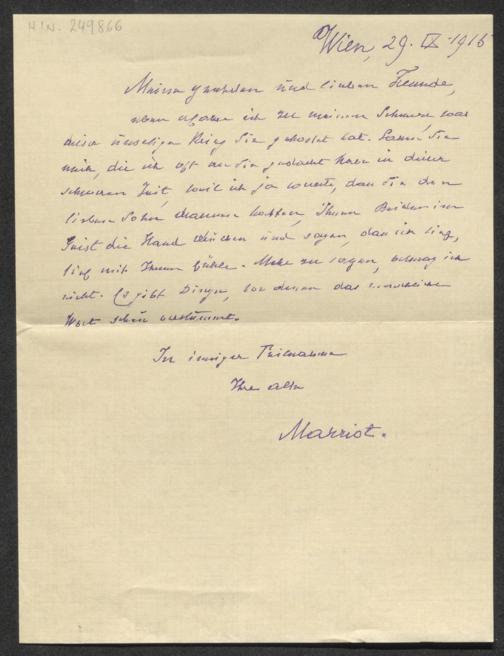 H.I.N. 249866
Wien, 29. IX. 1915
Meine verehrten und lieben Freunde,
eben erfahre ich zu meinem Schmerz, was
dieser unselige Krieg Sie gekostet hat. Lassen Sie
mich, die ich oft an Sie gedacht habe in dieser
schweren Zeit, weil ich ja wusste, dass Sie den
lieben Sohn draussen hatten, Ihnen Beiden im
Geist die Hand drücken und sagen, dass ich tief,
tief mit Ihnen fühle. Mehr zu sagen, vermag ich
nicht. Es gibt Dinge, vor denen das
Wort scheu verstummt.
In inniger Teilnahme
Ihre alte
Marriot.